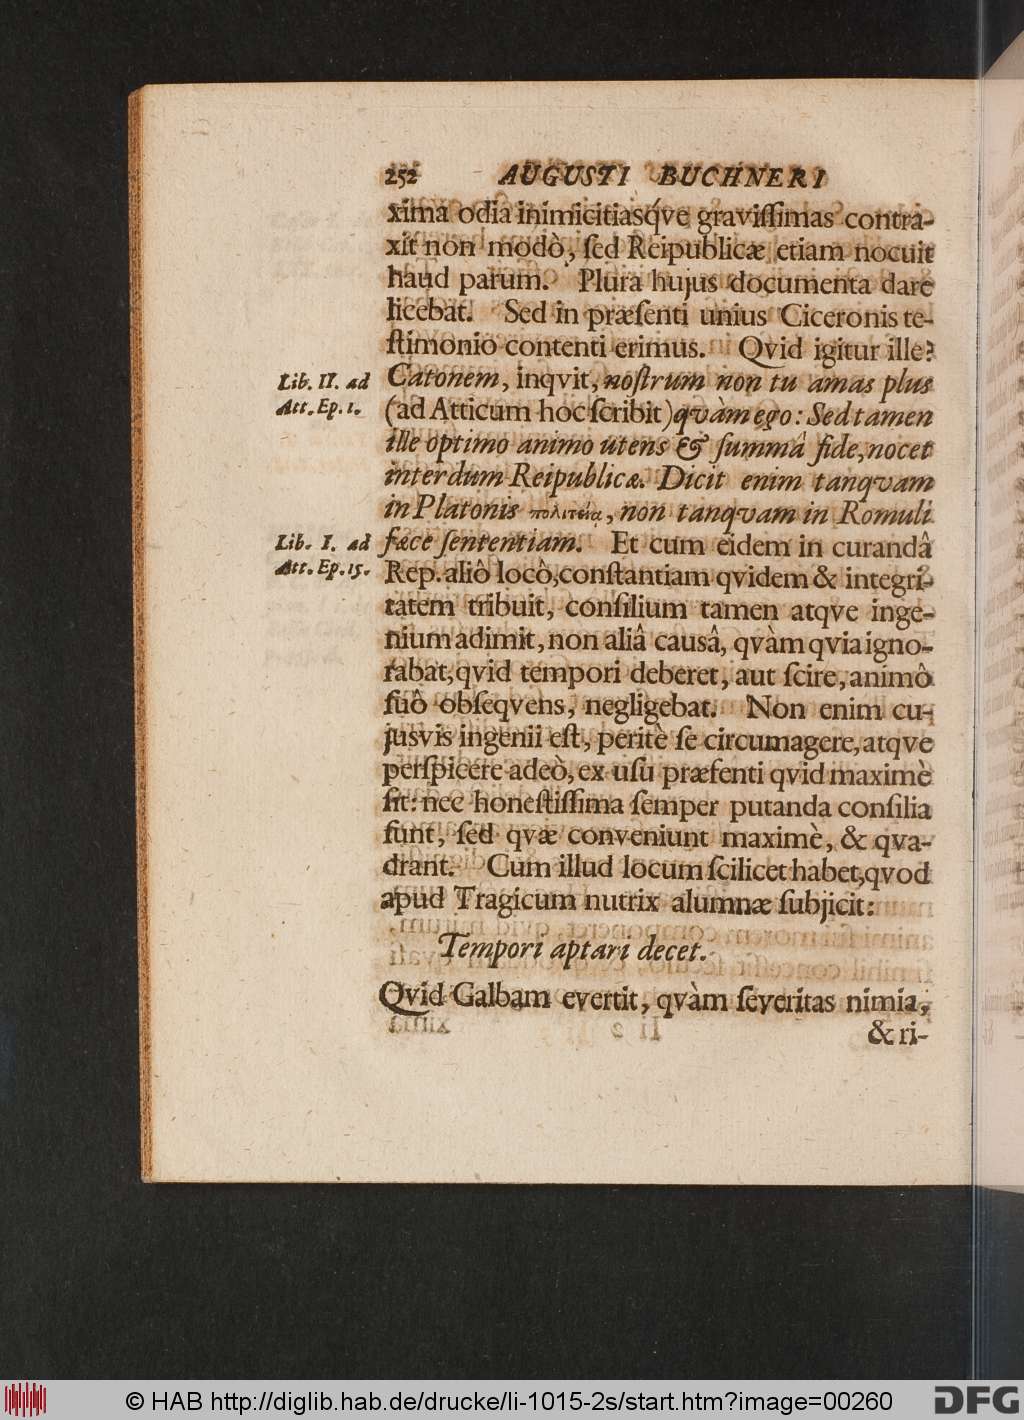 252 AUGUSTI BUCHNERI
xima odia inimicitiasq́ve graviſſimas contra-
xit non modò, ſed Reipublicæ etiam nocuit
haud parum. Plura hujus documenta dare
licebat. Sed in præſenti unius Ciceronis te-
ſtimonio contenti erimus. Qvid igitur ille?
Lib. II. ad Catonem, inqvit, noſtrum non tu amas plus
Att. Ep. 1. (ad Atticum hoc ſcribit) qvàm ego: Sed tamen
ille optimo animo utens & ſummâ fide, nocet
interdum Reipublicæ. Dicit enim tanqvam
in Platonis πολιτεία, non tanqvam in Romuli
Lib. I. ad fæce ſententiam. Et cum eidem in curandâ
Att. Ep. 15. Rep. aliô locô, conſtantiam qvidem & integri-
tatem tribuit, conſilium tamen atqve inge-
nium adimit, non aliâ causâ, qvàm qvia igno-
rabat, qvid tempori deberet, aut ſcire, animô
ſuô obſeqvens, negligebat. Non enim cu-
jusvis ingenii eſt, peritè ſe circumagere, atqve
perſpicere adeò, ex uſu præſenti qvid maximè
ſit: nec honeſtiſſima ſemper putanda conſilia
ſunt, ſed qvæ conveniunt maximè, & qva-
drant. Cum illud locum ſcilicet habet, qvod
apud Tragicum nutrix alumnæ ſubjicit:
Tempori aptari decet.
Qvid Galbam evertit, qvàm ſeveritas nimia,
& ri-
© HAB http://diglib.hab.de/drucke/li-1015-2s/start.htm?image=00260 DFG